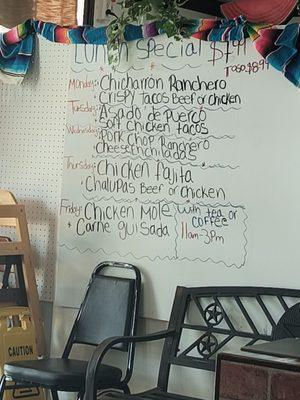 Lunch Special $7.99
Monday: Chicharrón Ranchero
• Crispy Tacos Beef or chicken
Tuesday: Asado de Puerco
• Soft Chicken tacos
Wednesday: Pork Chop Ranchero
Cheese Enchiladas
Thursday: Chicken Fajita
• Chalupas Beef or Chicken
Friday: Chicken Mole
• Carne guisada
with tea or
coffee
11am-3pm
CAUTION